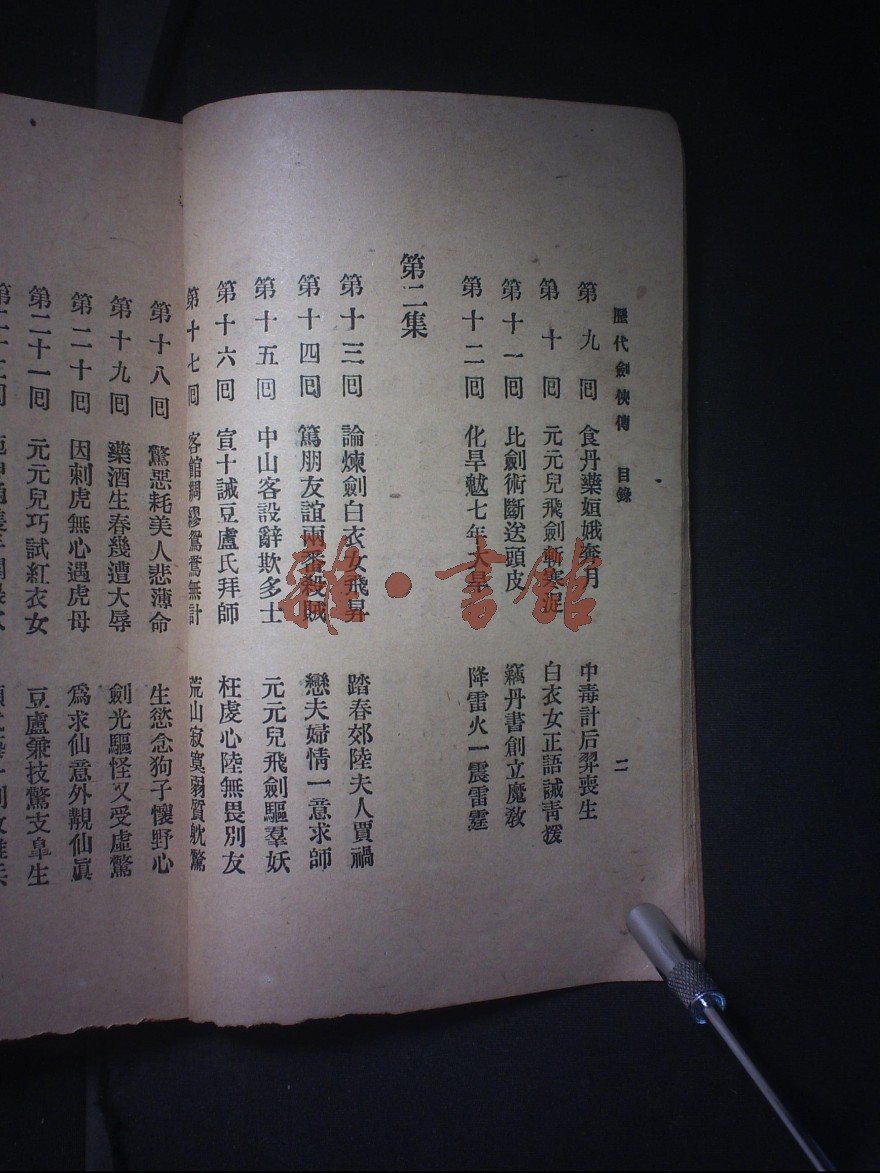 歷代劍俠傳 目錄 二
第九回 食丹藥姮娥奔月 中毒計后羿喪生
第十回 元元兒飛劍斬寒浞 白衣女正語誡青援
第十一回 比劍術斷送頭皮 竊丹書創立魔教
第十二回 化旱魃七年大旱 降雷火一震雷霆
第二集
第十三回 論煉劍白衣女飛昇 踏春郊陸夫人賈禍
第十四回 篤朋友誼兩番殺賊 戀夫婦情一意求師
第十五回 中山客設辭欺多士 元元兒飛劍驅羣妖
第十六回 宣十誡豆盧氏拜師 枉虔心陸無畏別友
第十七回 客館綢繆鴛鴦無計 荒山寂寞弱質躭驚
第十八回 驚惡耗美人悲薄命 生慾念狗子懷野心
第十九回 藥酒生春幾遭大辱 劍光驅怪又受虛驚
第二十回 因刺虎無心遇虎母 爲求仙意外覩仙眞
第二十一回 元元兒巧試紅衣女 豆盧兼技驚支臯生
雜·書館